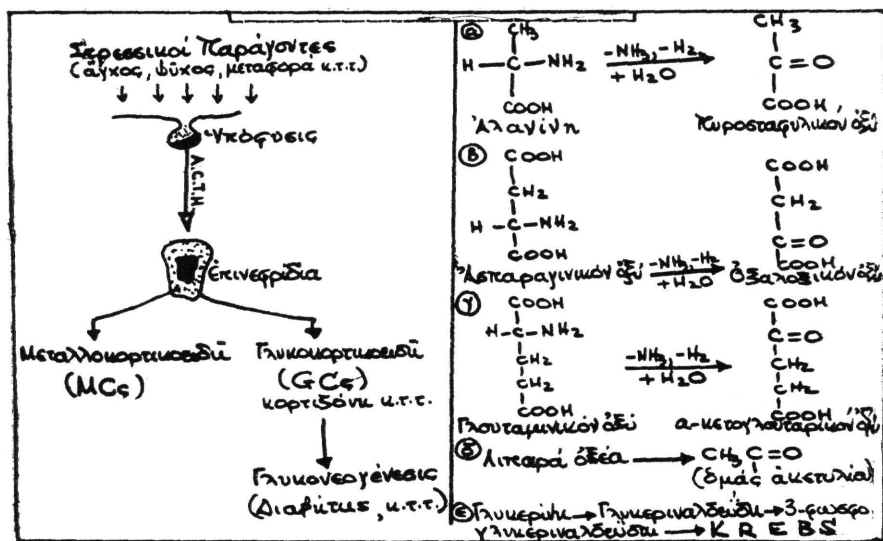 Στρεσσικοί Παράγοντες
(ἄγχος, ψῦχος, μεταφορά κ.τ.τ.)
Ὑπόφυσις
A.C.T.H
Ἐπινεφρίδια
Μεταλλοκορτικοειδῆ
(MCς)
Γλυκοκορτικοειδῆ
(GCς)
κορτιζόνη κ.τ.τ.
Γλυκονεογένεσις
(Διαβήτης, κ.τ.τ.)
α
CH3
H—C—NH2
COOH
Ἀλανίνη
-NH3,-H2
+H2O
CH3
C=O
COOH
Πυροσταφυλικόν ὀξύ
β
COOH
CH2
H-C-NH2
COOH
Ἀσπαραγινικόν ὀξύ
-NH3,-H2
+H2O
COOH
CH2
C=O
COOH
Ὀξαλοξικόν ὀξύ
γ
COOH
H-C-NH2
CH2
CH2
COOH
Γλουταμινικόν ὀξύ
-NH3,-H2
+H2O
COOH
C=O
CH2
CH2
COOH
α-κετογλουταρικόν ὀξύ
δ Λιπαρά ὀξέα → CH3 C=O
(ὁμάς ἀκετυλίου)
ε Γλυκερίνη → Γλυκεριναλδεΰδη → 3-φωσφο
γλυκεριναλδεΰδη → K R E B S